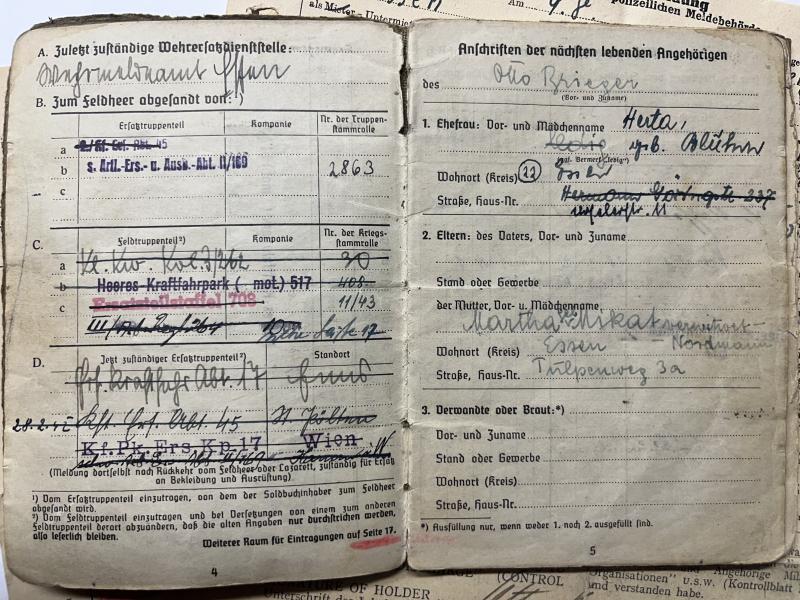 Am
als Mieter - Untermiet
polizeilichen Meldebehörd
A. Zuletzt zuständige Wehrersatzdienststelle:
Wehrmeldeamt Essen
B. Zum Feldheer abgesandt von:¹)
Ersatztruppenteil
Kompanie
Nr. der Truppenstammrolle
a
45
b s. Artl.-Ers.- u. Ausb.-Abt. II/109 2863
c
C.
Feldtruppenteil²)
Kompanie
Nr. der Kriegsstammrolle
a Kl. Kw. Kol. 3/262 30
b Heeres-Kraftfahrpark ( mot.) 517 408
c Ersatzteilstaffel 708 11/43
Siehe Seite 17
D.
Jetzt zuständiger Ersatztruppenteil²)
Standort
Kraftfahr Abt. 17 Enns
28.2.42 Kft. Ers. Abt. 45 St. Pölten
Kf.Pk.Ers.Kp.17 Wien
(Meldung dortselbst nach Rückkehr vom Feldheer oder Lazarett, zuständig für Ersatz
an Bekleidung und Ausrüstung)
¹) Vom Ersatztruppenteil einzutragen, von dem der Soldbuchinhaber zum Feldheer
abgesandt wird.
²) Vom Feldtruppenteil einzutragen und bei Versetzungen von einem zum anderen
Feldtruppenteil derart abzuändern, daß die alten Angaben nur durchstrichen werden,
also leserlich bleiben.
Weiterer Raum für Eintragungen auf Seite 17.
4
Anschriften der nächsten lebenden Angehörigen
des Otto Brieger
(Vor- und Zuname)
1. Ehefrau: Vor- und Mädchenname Herta,
geb. Blühm
(ggf. Vermerk „ledig")
Wohnort (Kreis) (22) Essen
Straße, Haus-Nr. Hermann Göringstr. 237
11
2. Eltern: des Vaters, Vor- und Zuname
Stand oder Gewerbe
der Mutter, Vor- u. Mädchenname
Martha geb. Mikat verwitwet
Wohnort (Kreis) Essen – Nordmann
Straße, Haus-Nr. Tulpenweg 3a
3. Verwandte oder Braut:*)
Vor- und Zuname
Stand oder Gewerbe
Wohnort (Kreis)
Straße, Haus-Nr.
*) Ausfüllung nur, wenn weder 1. noch 2. ausgefüllt sind.
5
OF HOLDER
(CONTROL
Angehörige
Organisationen" u.s.w. (Kontrollblatt
und verstanden habe.